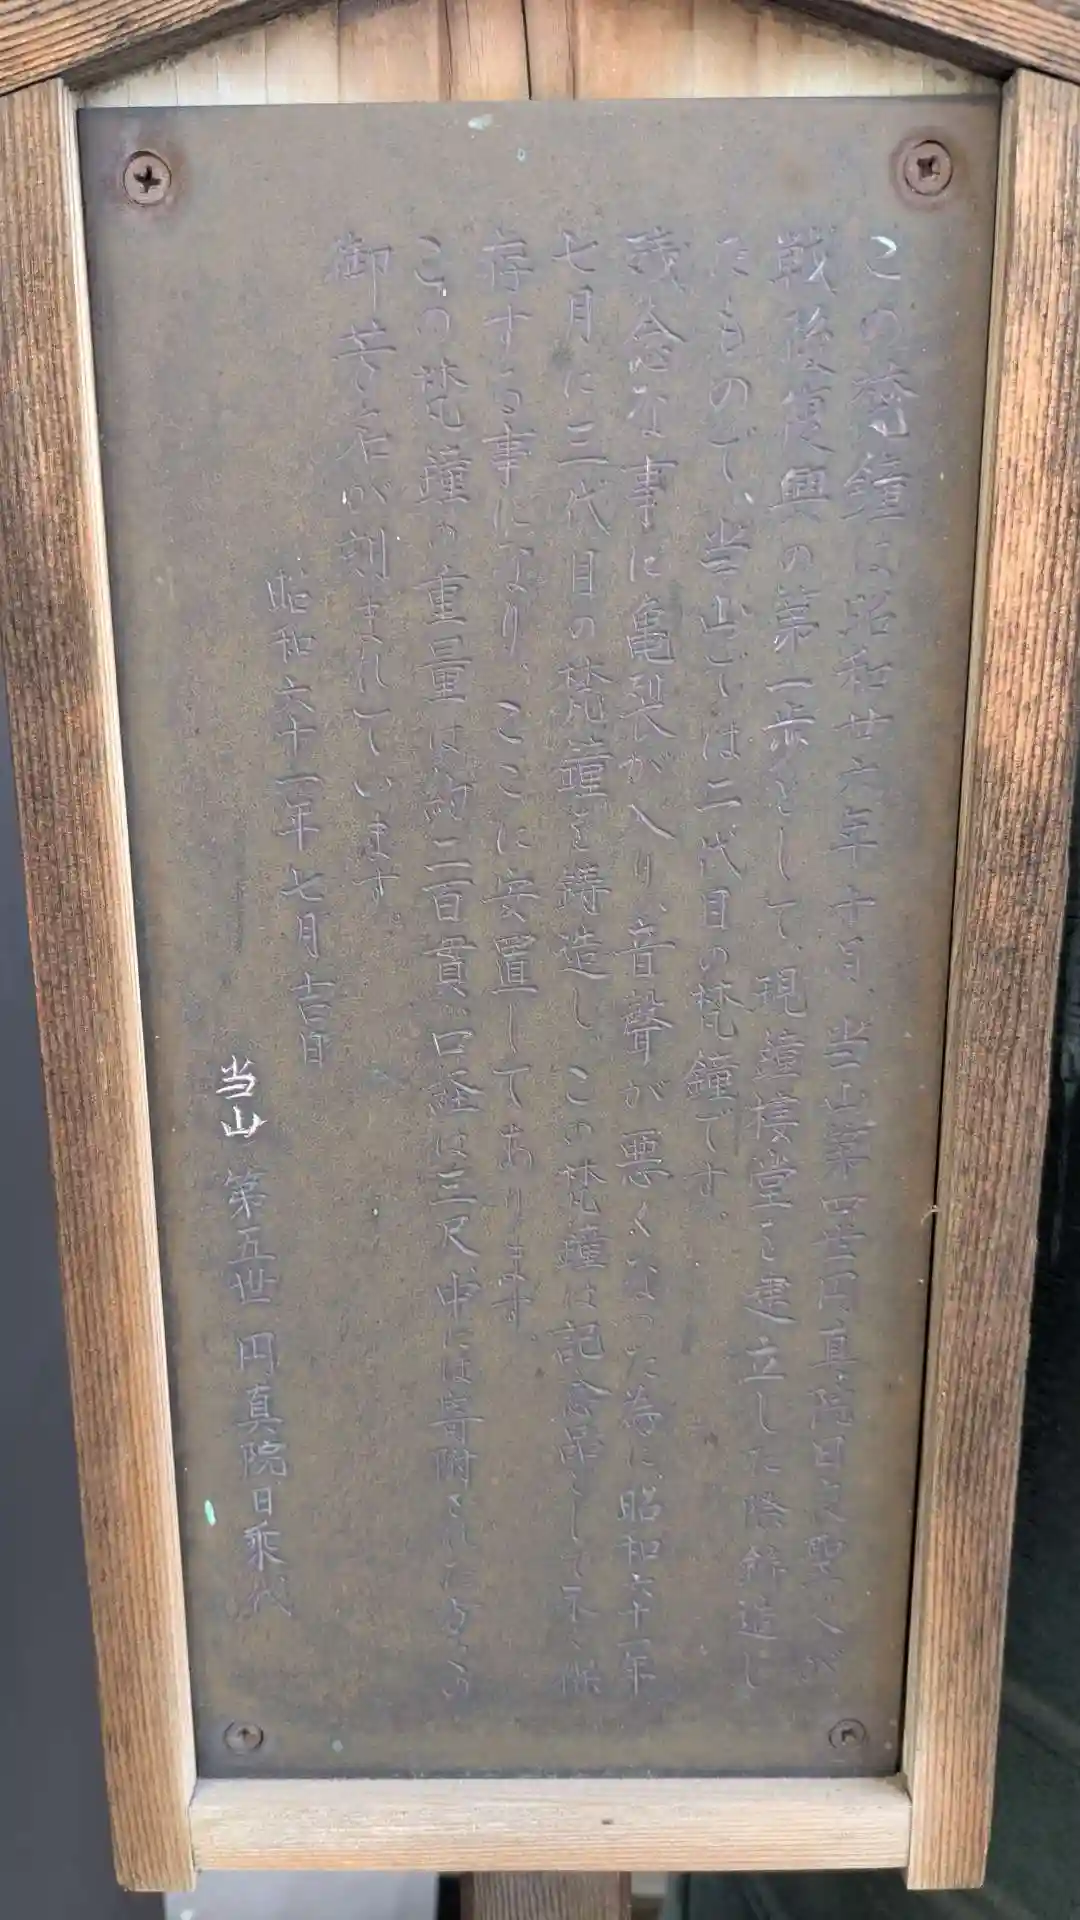 この梵鐘は昭和廿六年十月、当山第四世円真院日文聖人が
戦後復興の第一歩として、現鐘楼堂を建立した際鋳造し
たもので、当山では二代目の梵鐘です。
残念な事に亀裂が入り、音聲が悪くなった為に、昭和六十一年
七月に三代目の梵鐘を鋳造し、この梵鐘は記念品として永く保
存する事になり、ここに安置してあります。
この梵鐘の重量は約二百貫、口経は三尺、中には寄附された方々の
御芳名が刻まれています。
昭和六十一年七月吉日
当山 第五世 円真院日乘代